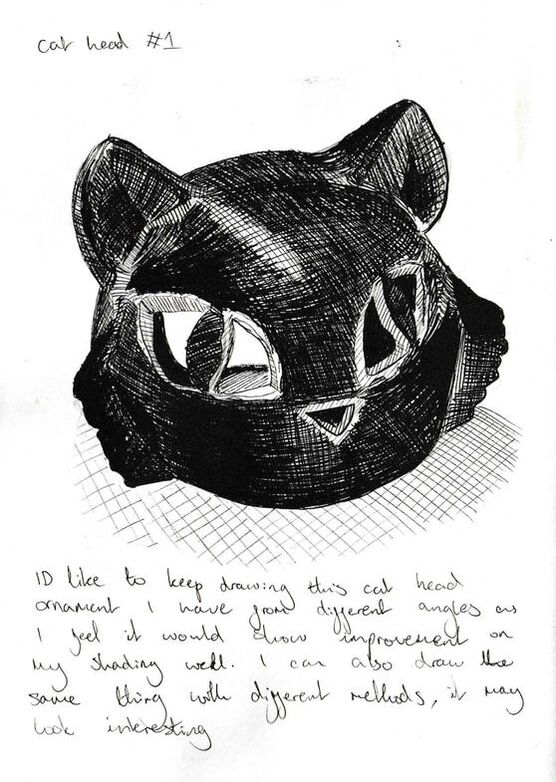 cat head #1
ID like to keep drawing this cat head
ornament I have from different angles as
I feel it would show improvement on
my shading well. I can also draw the
same thing with different methods, it may
look interesting